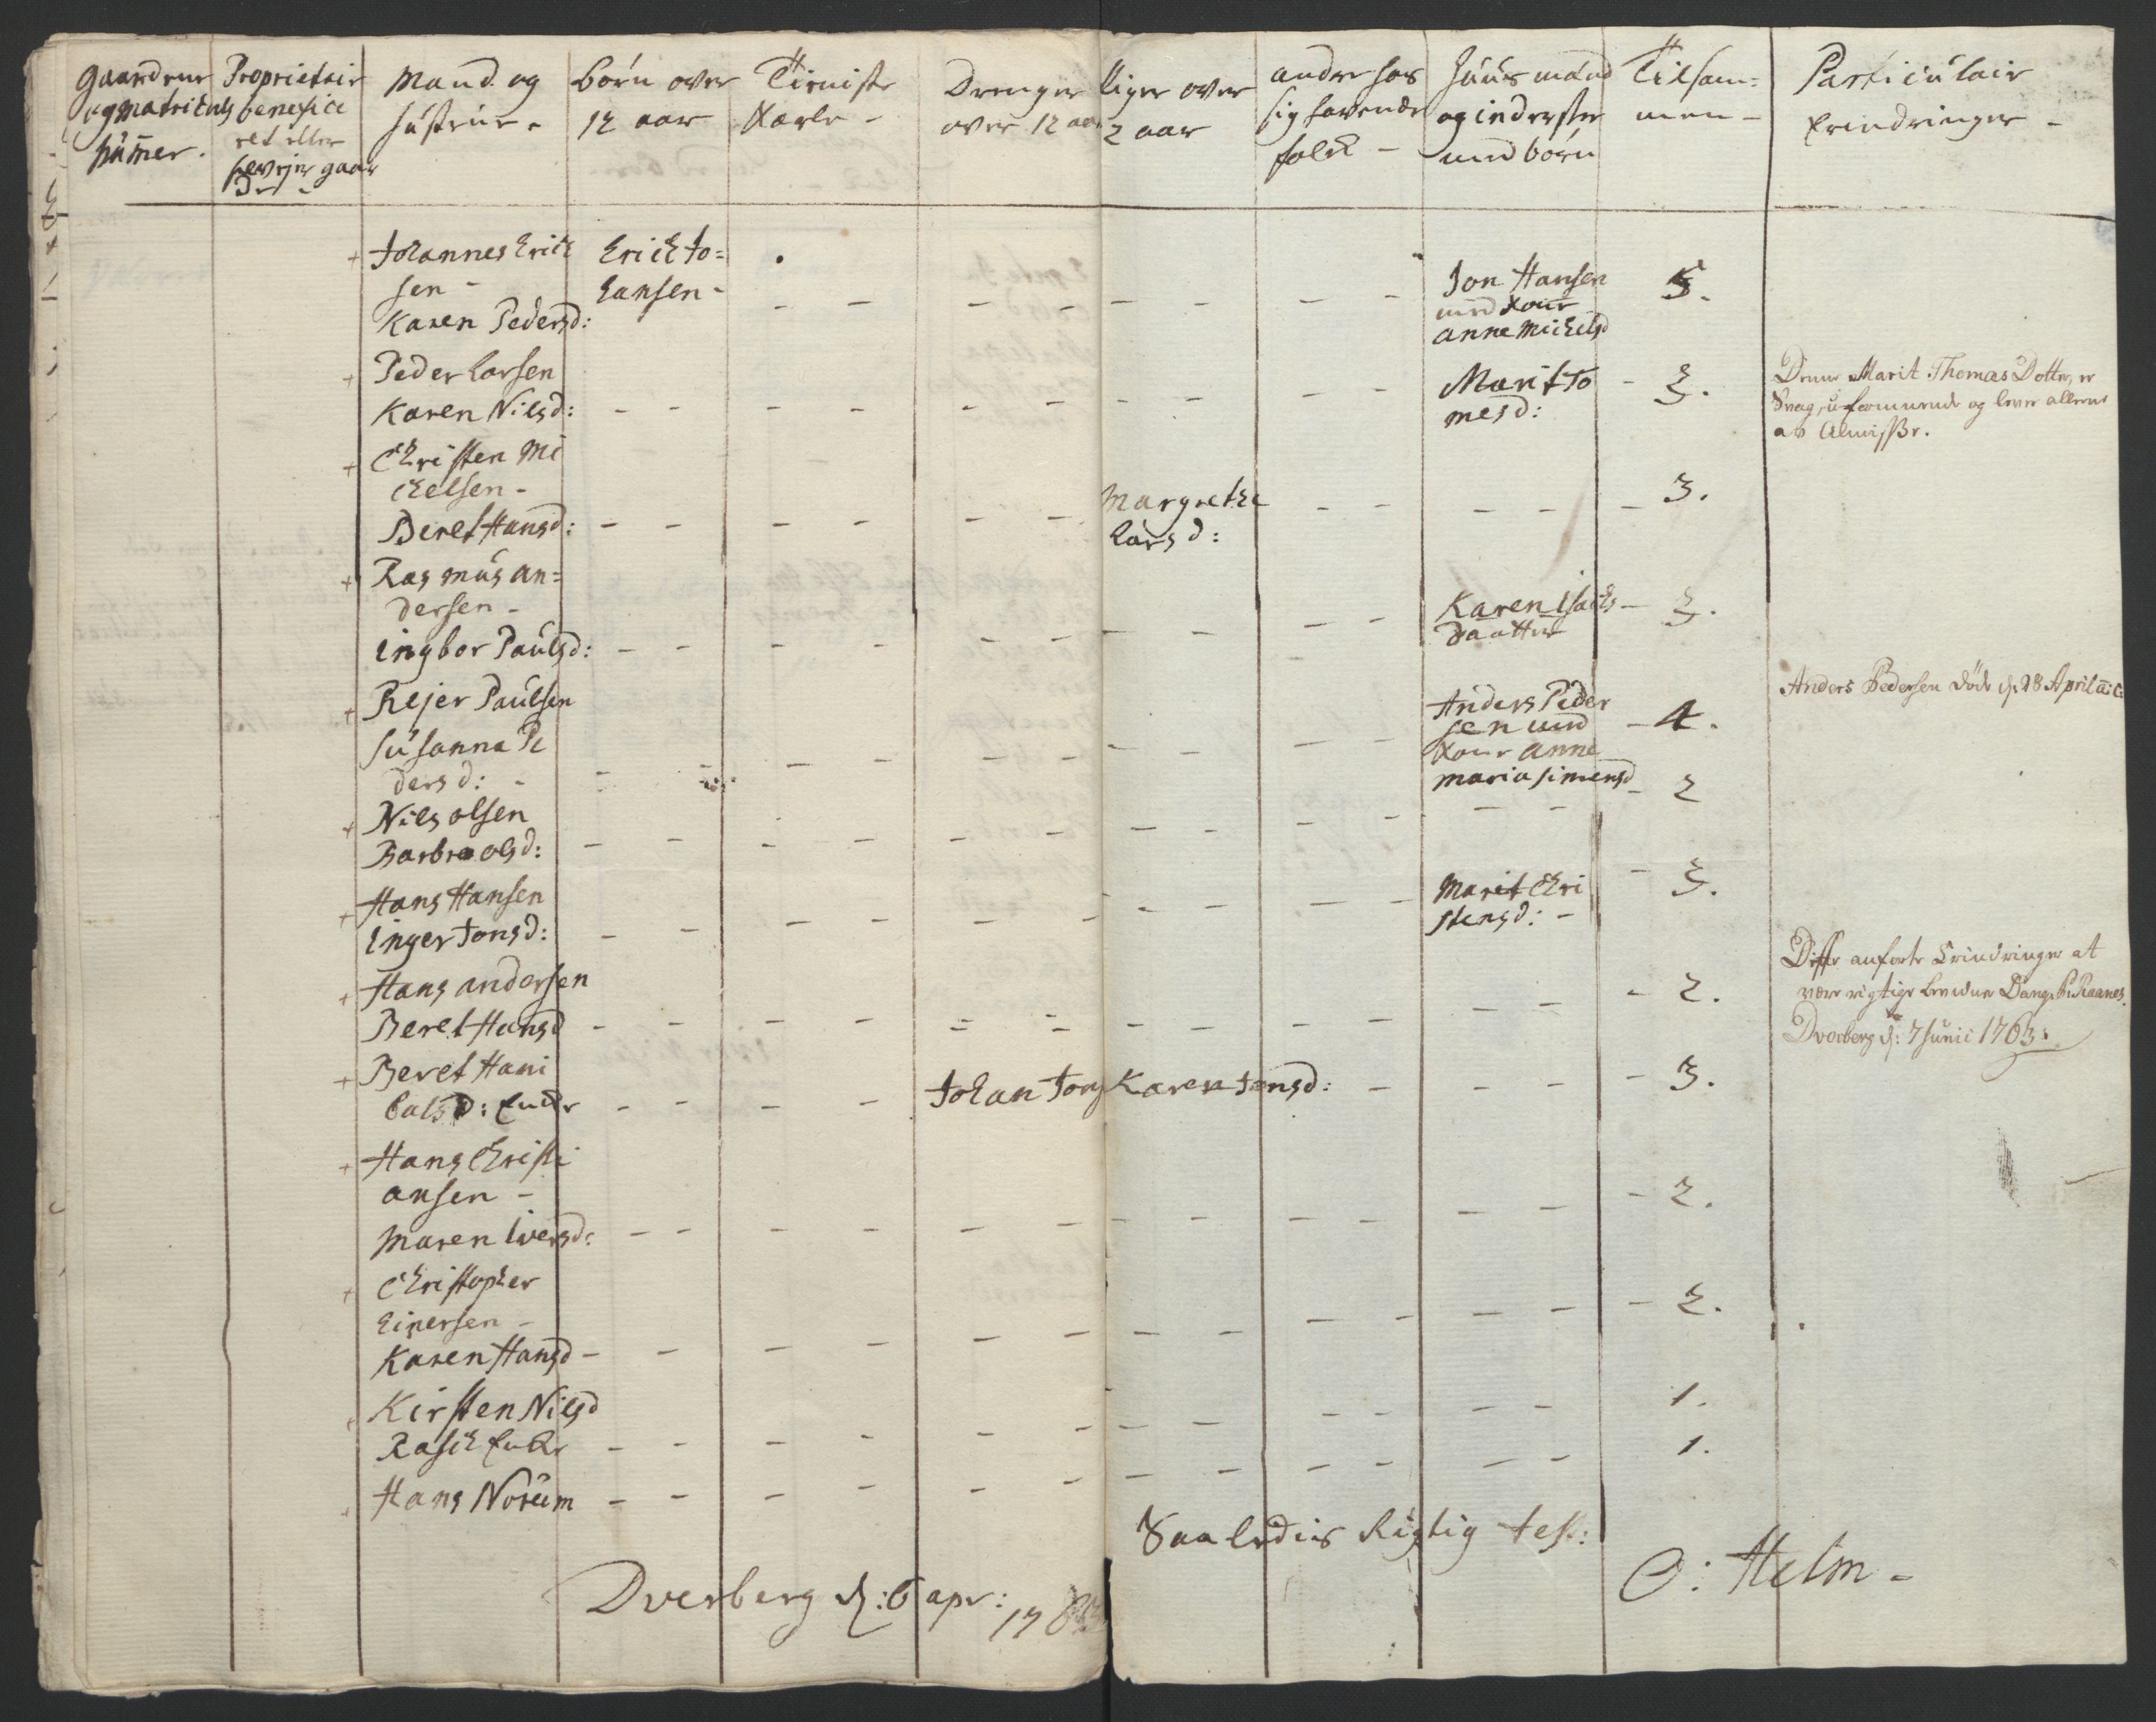 Gaardens og matriculs nummer.
Proprietair benefice ret eller selvejer gaar der
Mand og hustrue.
børn over 12 aar
Tieniste Karle
Drenger over 12 aar
Piger over 12 aar
andre hos sig havende folk
Huusmænd og inderster med børn
Tilsammen
Particulair Erindringer
Johannes Erich
sen -
Karen Pedersd:
Erich Jo=
hansen -
Jon Hansen
med Kone
anne Michelsd
5.
Peder Larsen
Karen Nilsd:
Marit To
mesd:
3.
Denne Marit Thomas Dotter, er
Svag, uformuende og lever allene
av Almisse.
Christen Mi
chelsen -
Beret Hansd:
Margrethe
Larsd:
3.
Rasmus an=
dersen -
Ingbor Paulsd:
Karen Isachs
daatter
3.
Rejer Paulsen
Susanna Pe
dersd: -
Anders Peder
sen med
Kone anne
maria simensd
4.
Anders Pedersen døde d. 28 April a: c:
Nils olsen
Barbra olsd:
2
Hans Hansen
Inger Jonsd:
Marit Chri
stensd: -
3.
Hans andersen
Beret Hansd
2.
Disse anførte Erindringer at
være rigtige bevidner
Dverberg d: 7 Junii 1763.
Beret Hani
balsd: Enke
Johan Jons
Karen Jonsd:
3.
Hans Christi
ansen -
Maren Iversd:
2.
Christopher
Einersen -
Karen Hansd -
2.
Kirsten Nilsd
Rasch Enke
1.
Hans Norum
1.
Saaledes Rigtig test:
Dverberg d: 6 apr: 1763
O: Helm -